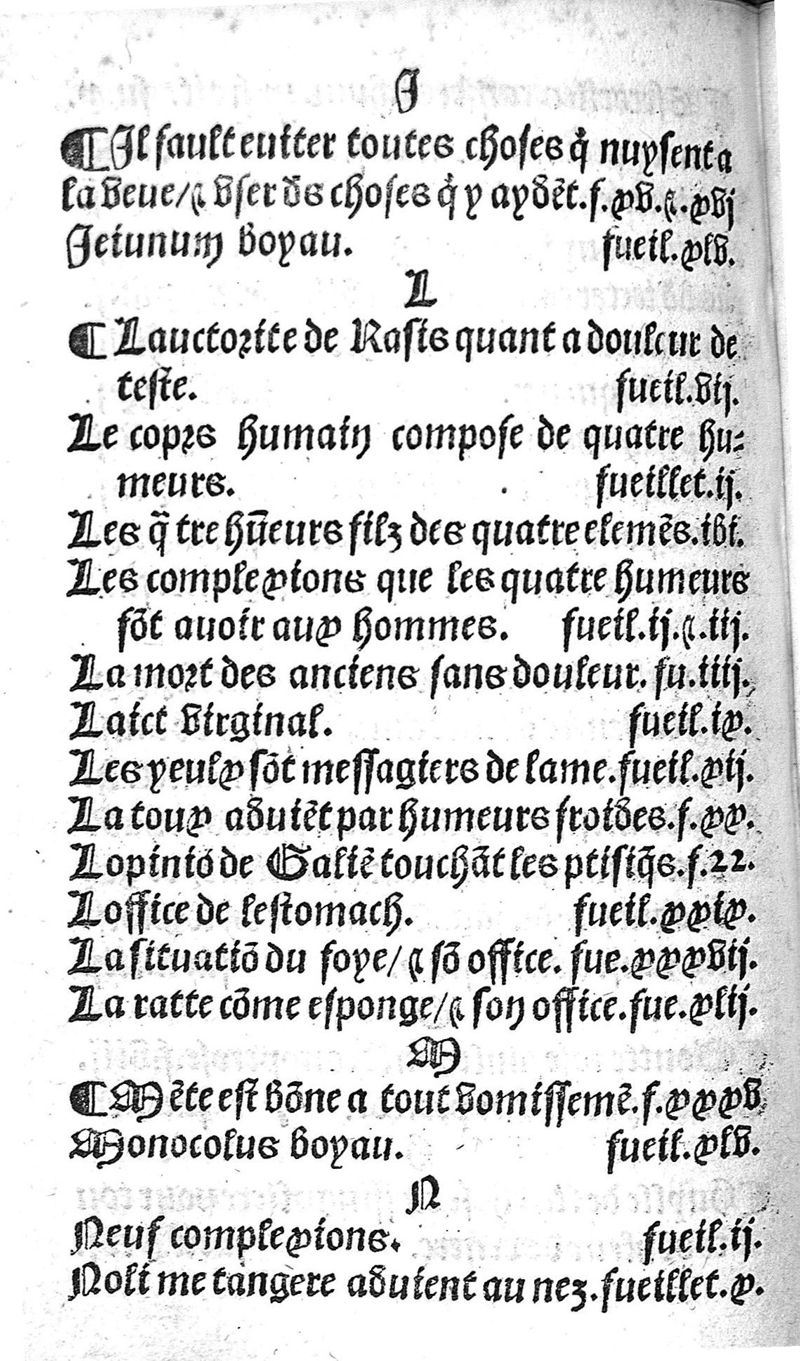 I
¶ Il fault euiter toutes choses q̃ nuysent a
la veue/⁊ vser d̃s choses q̃ y aydẽt.f.xv.⁊.xvj
Jeiunum boyau. fueil.xlv.
L
¶ Lauctorite de Rasis quant a douleur de
teste. fueil.vij.
Le corps humain compose de quatre hu-
meurs. fueillet.ij.
Les q̃tre hũeurs filz des quatre elemẽs.ibi.
Les complexions que les quatre humeurs
fõt auoir aux hommes. fueil.ij.⁊.iij.
La mort des anciens sans douleur. fu.iiij.
Laict virginal. fueil.ix.
Les yeulx sõt messagiers de lame.fueil.xij.
La toux aduiẽt par humeurs froides.f.xx.
Lopiniõ de Galiẽ touchãt les ptisiq̃s.f.22.
Loffice de lestomach. fueil.xxix.
La situatiõ du foye/⁊ sõ office. fue.xxxvij.
La ratte cõme esponge/⁊ son office.fue.xlij.
M
¶ Mẽte est bõne a tout vomissemẽ.f.xxxv
Monocolus boyau. fueil.xlv.
N
Neuf complexions. fueil.ij.
Noli me tangere aduient au nez.fueillet.x.